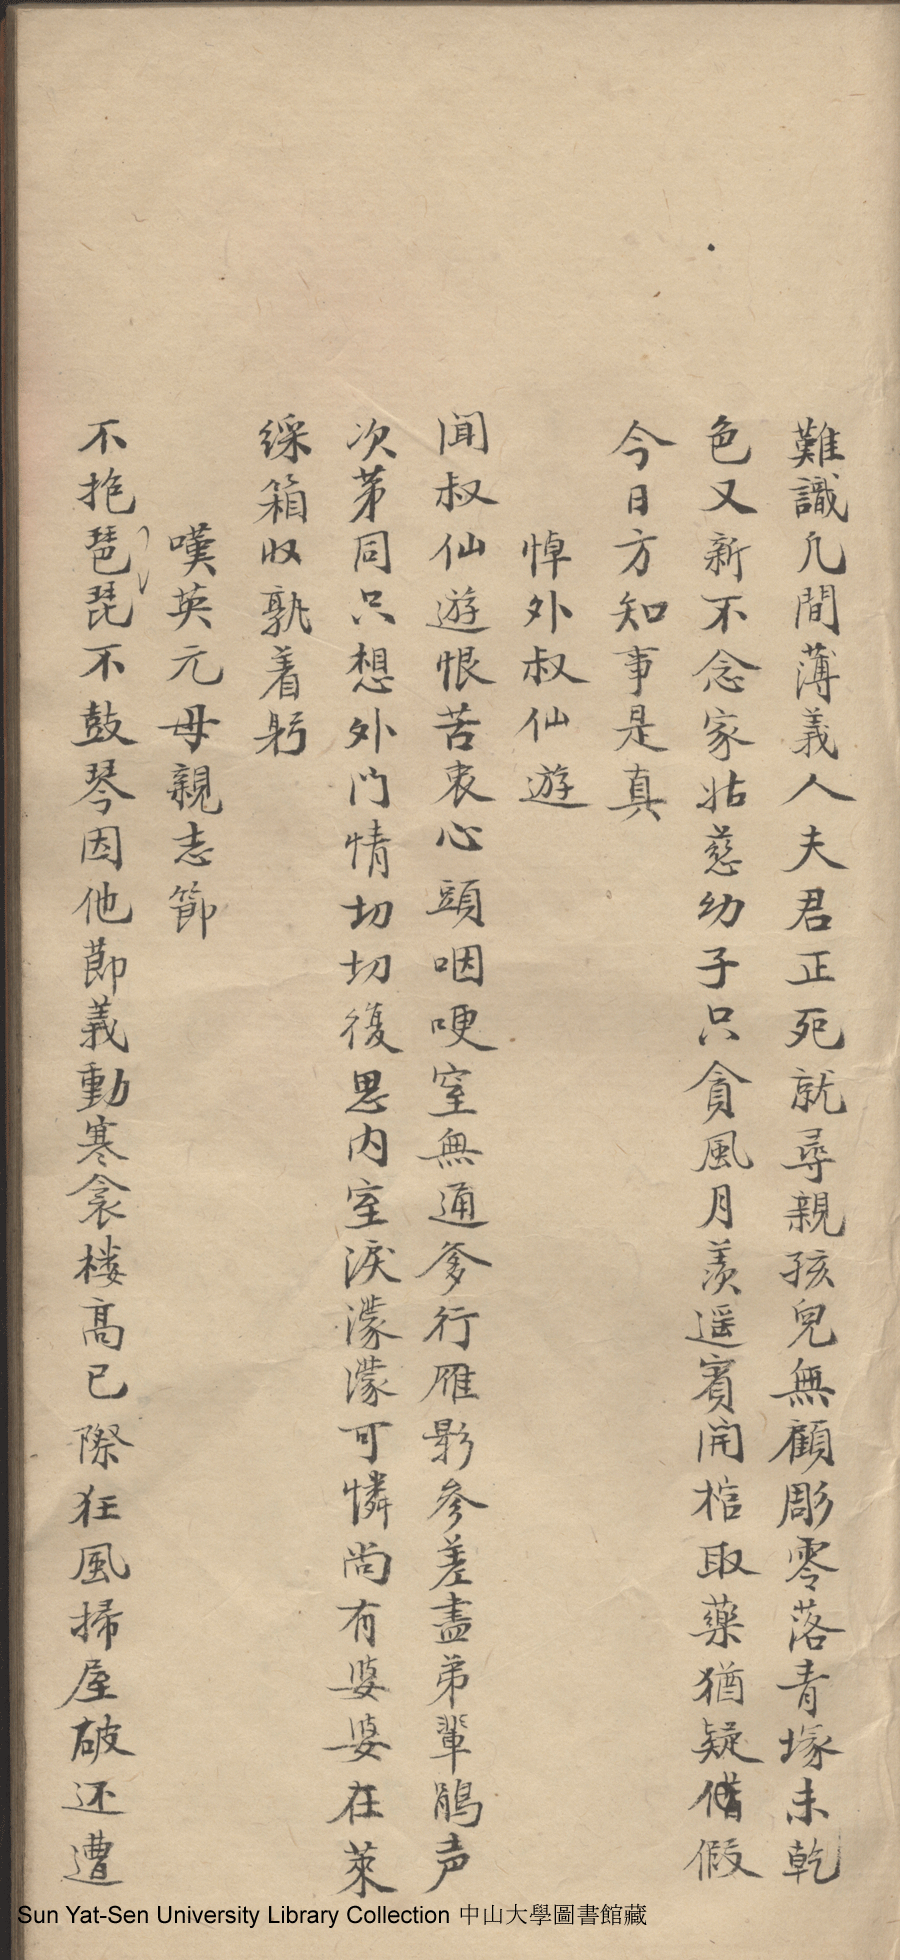 難識凡間薄義人夫君正死就尋親孩兒無顧彫零落青塚未乾
色又新不念家姑慈幼子只貪風月羨遥賓開棺取藥猶疑假
今日方知事是真
悼外叔仙遊
聞叔仙遊恨苦衷心頭咽哽室無通爹行雁影參差盡弟輩鵑声
次苐同只想外门情切切復思内室淚濛濛可憐尚有婆婆在萊
綵箱收孰着躬
嘆英元母親志節
不抱琶琵不鼓琴因他莭義動寒衾楼高已際狂風掃屋破还遭
Sun Yat-Sen University Library Collection 中山大學圖書館藏